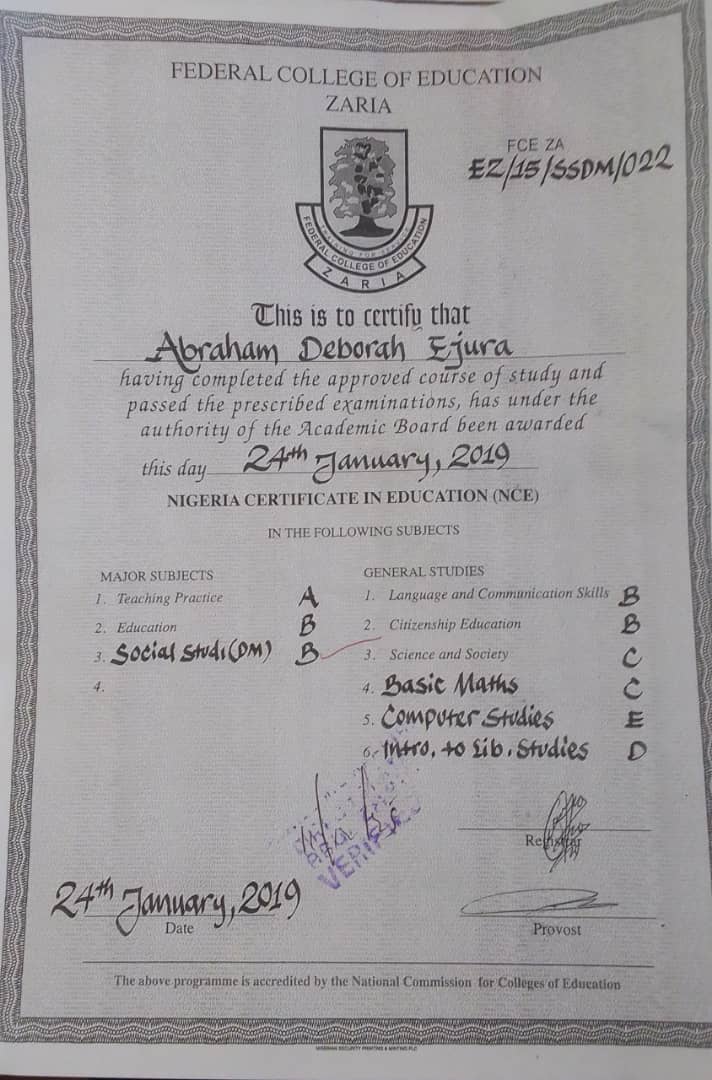 FEDERAL COLLEGE OF EDUCATION
ZARIA
FCE ZA
EZ/15/SSDM/022
FEDERAL COLLEGE OF EDUCATION
ZARIA
This is to certify that
Abraham Deborah Ejura
having completed the approved course of study and
passed the prescribed examinations, has under the
authority of the Academic Board been awarded
this day 24th January, 2019
NIGERIA CERTIFICATE IN EDUCATION (NCE)
IN THE FOLLOWING SUBJECTS
MAJOR SUBJECTS
1. Teaching Practice A
2. Education B
3. Social Studi(DM) B
4.
GENERAL STUDIES
1. Language and Communication Skills B
2. Citizenship Education B
3. Science and Society C
4. Basic Maths C
5. Computer Studies E
6. Intro. to Lib. Studies D
Registrar
24th January, 2019
Date
Provost
The above programme is accredited by the National Commission for Colleges of Education